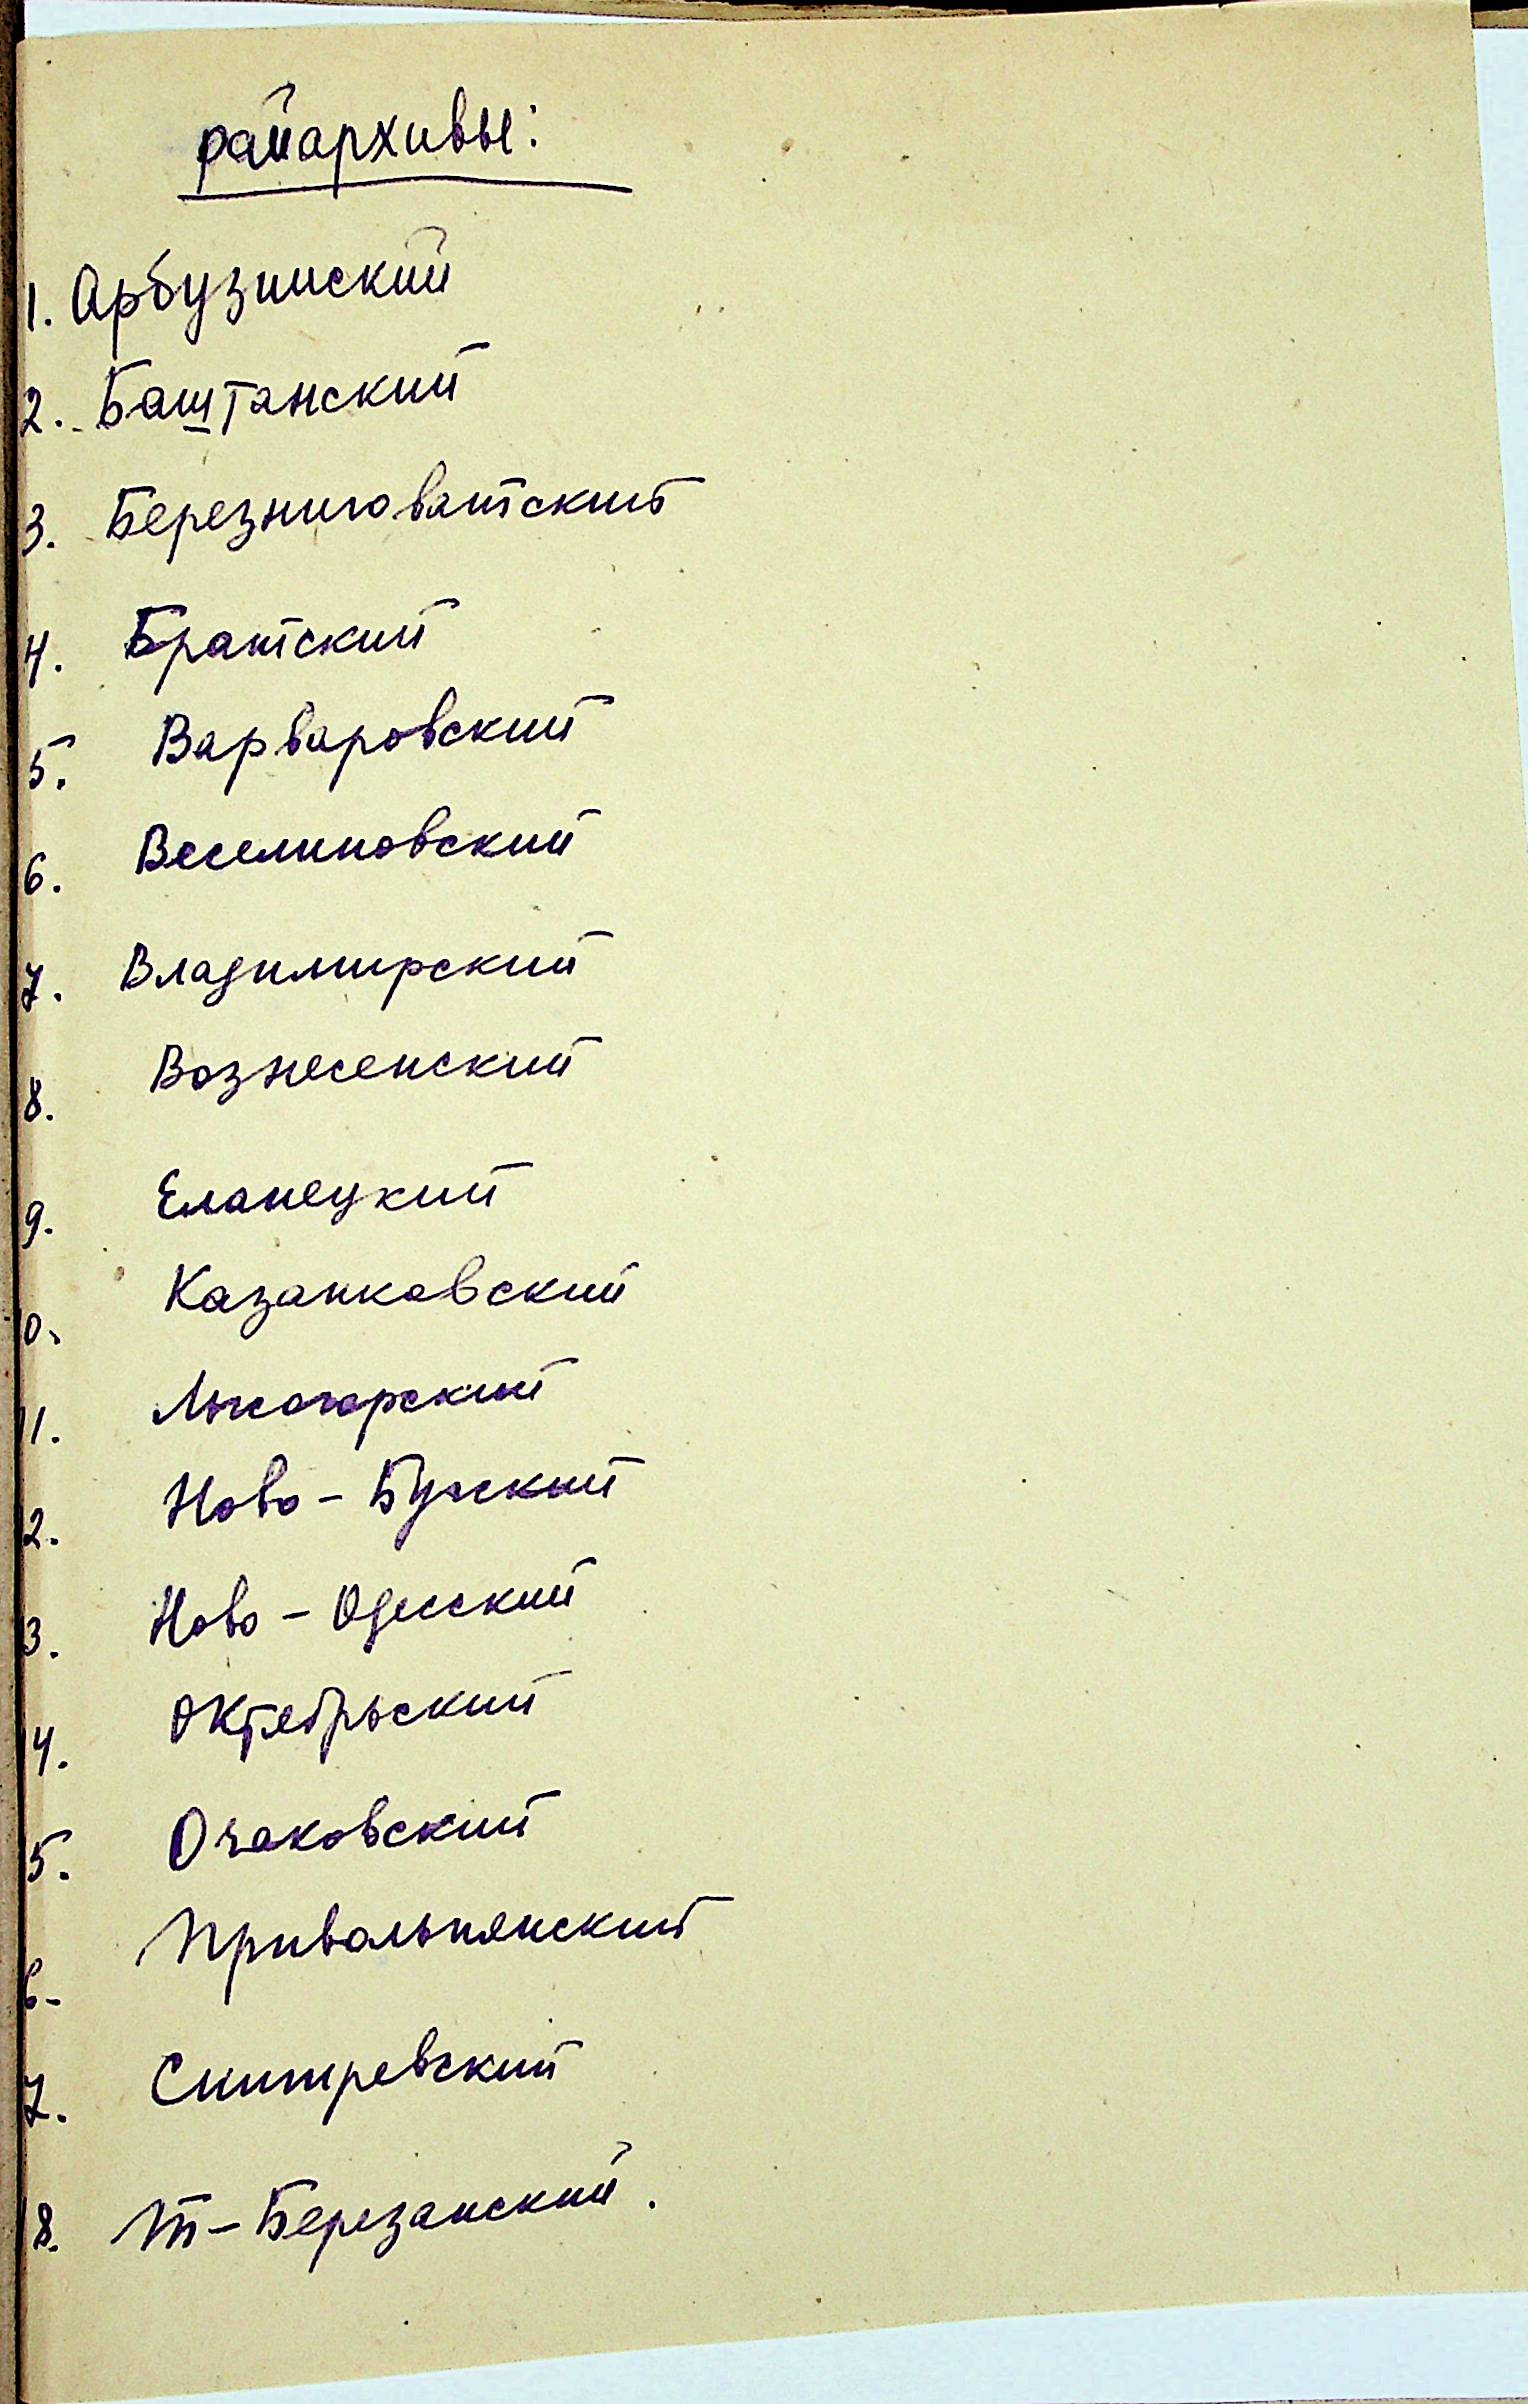 райархивы:
1. Арбузинский
2. Баштанский
3. Березниговатский
4. Братский
5. Варваровский
6. Веселиновский
7. Владимирский
8. Вознесенский
9. Еланецкий
10. Казанковский
11. Лысогорский
12. Ново-Бугский
13. Ново-Одесский
14. Октябрьский
15. Очаковский
16. Привольнянский
17. Снигиревский
18. Т-Березанский.